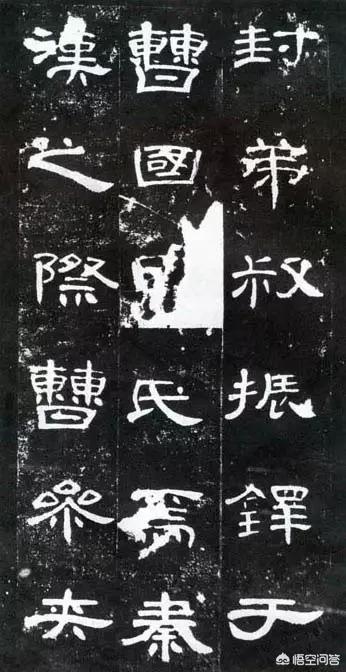 封弟叔振鐸于
曹國氏焉秦
漢之際曹參夾
悟空问答